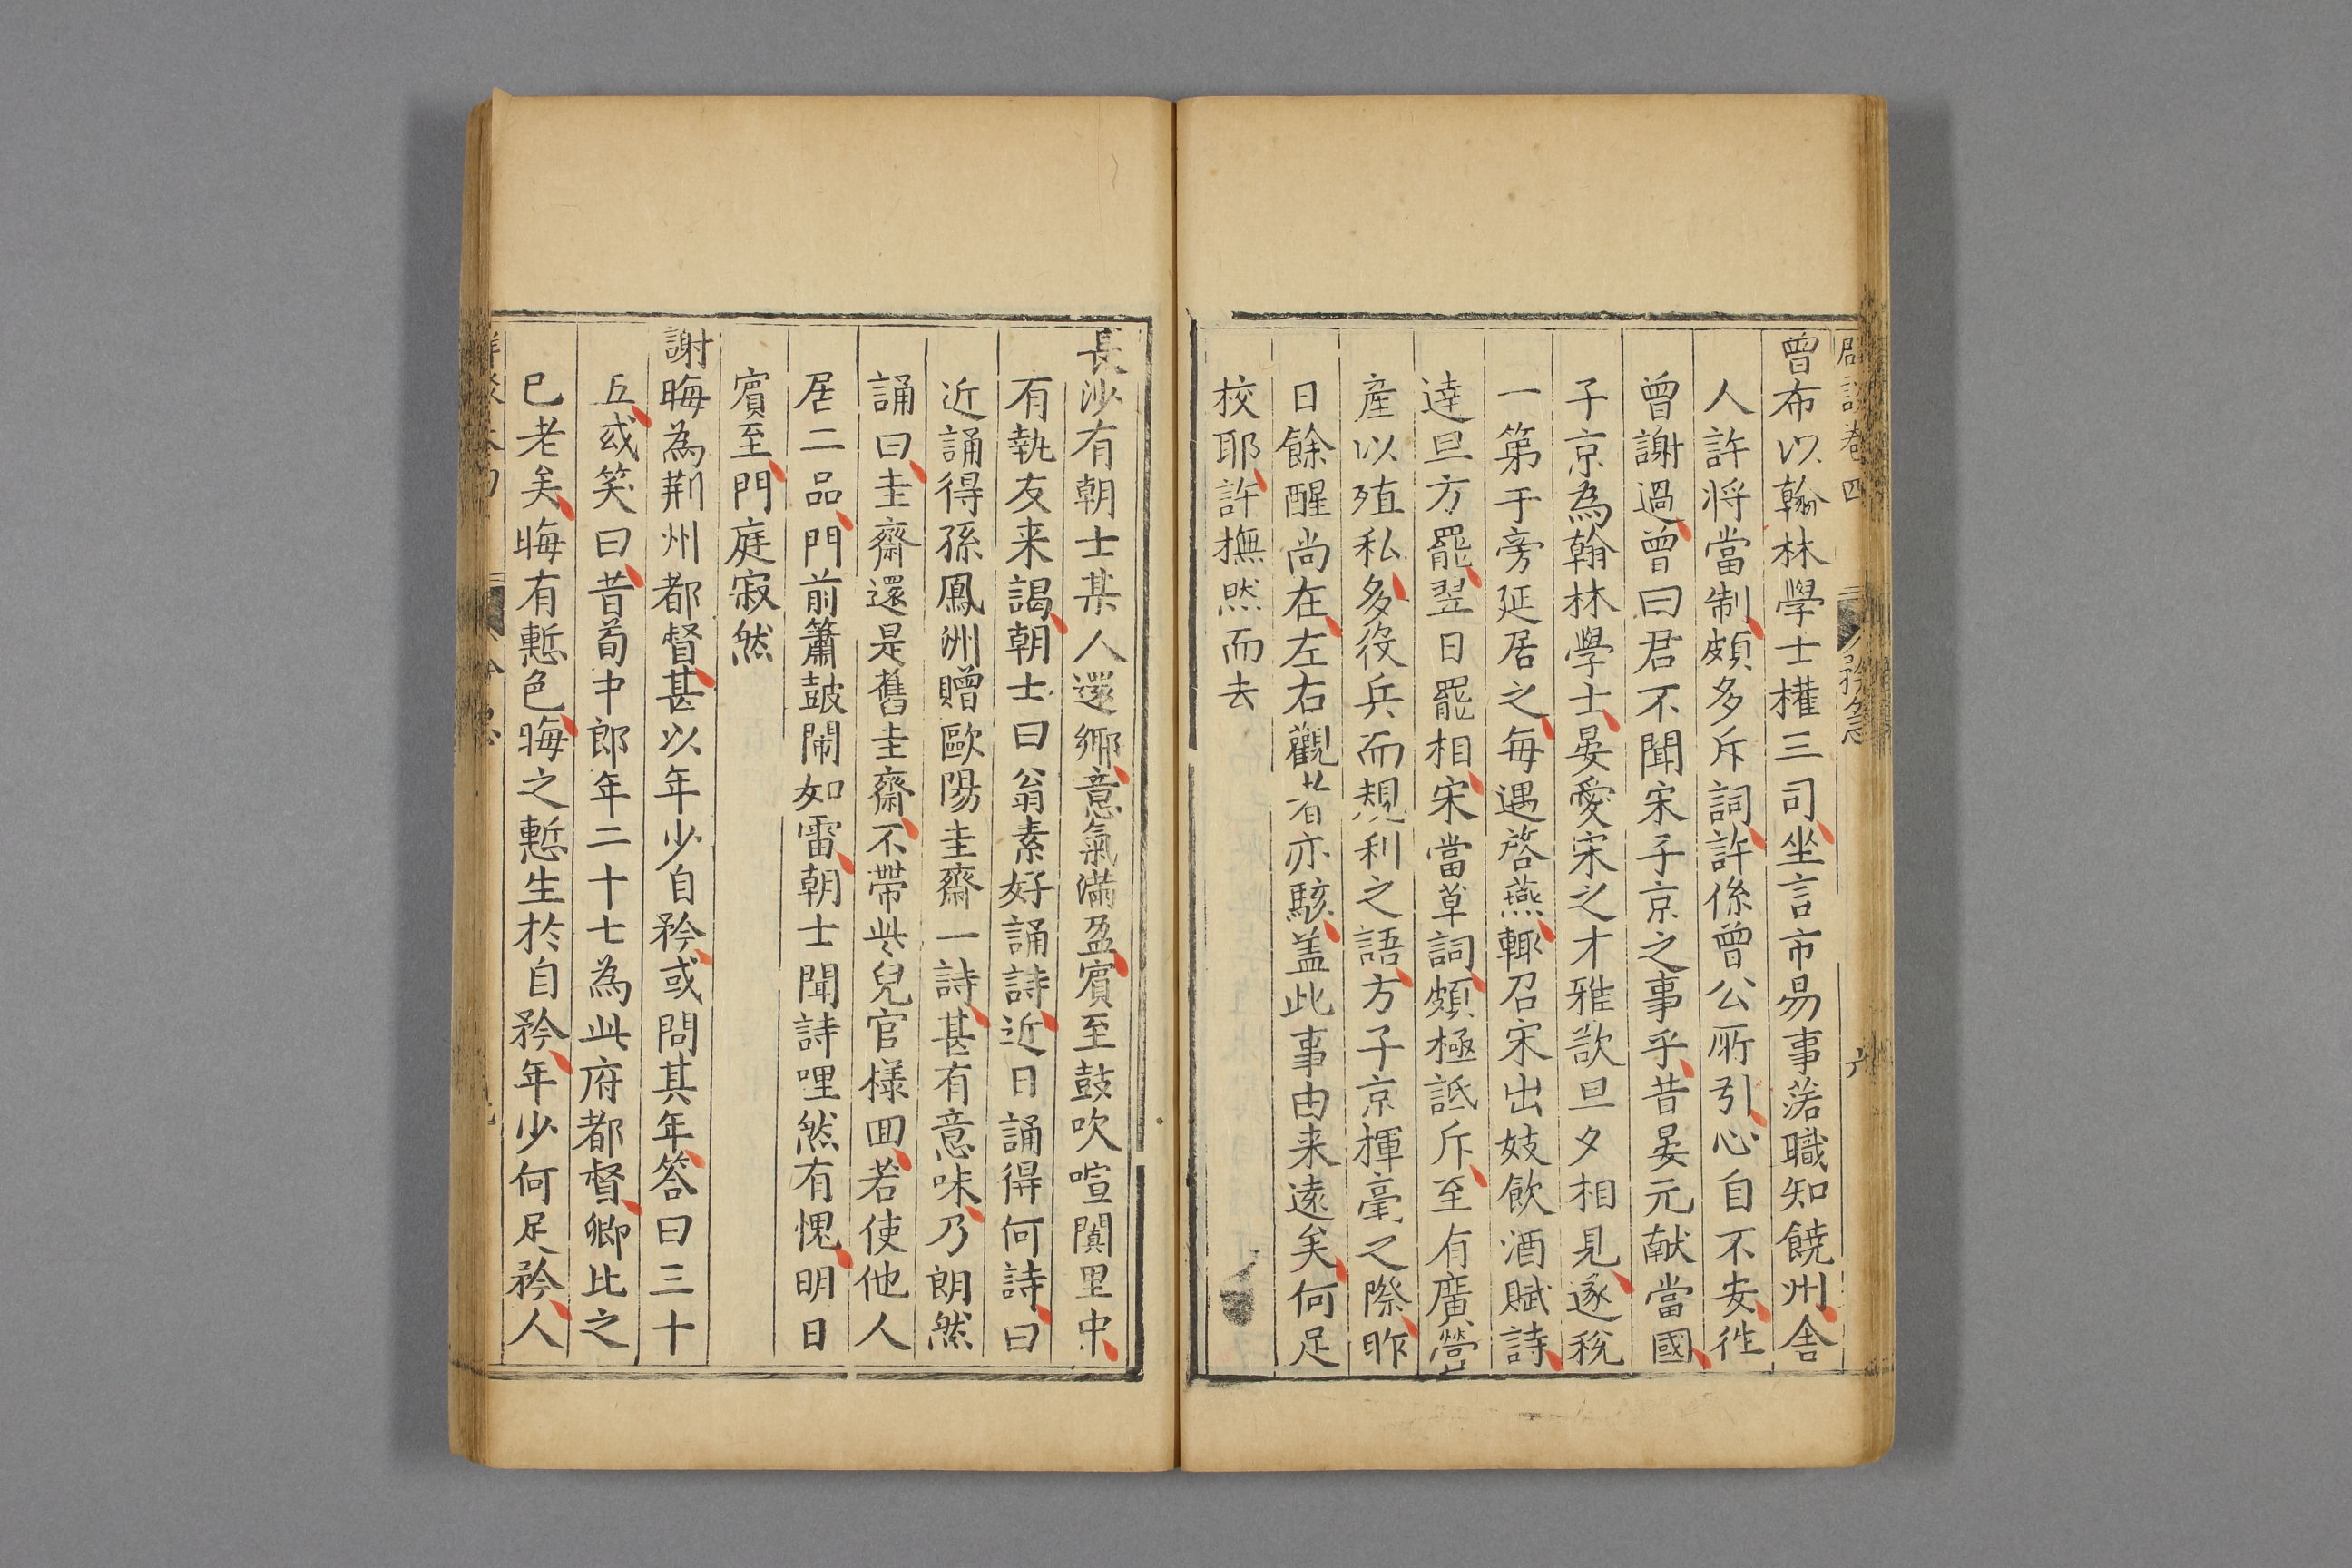 曾布以翰林學士權三司坐言市易事落職知饒州舍
人許将當制頗多斥詞許係曾公所引心自不安徃
曾謝過曾曰君不聞宋子京之事乎昔晏元献當國
子京為翰林學士晏愛宋之才雅欲旦夕相見遂稅
一第于旁延居之每遇啓燕輙召宋出妓飲酒賦詩
達旦方罷翌日罷相宋當草詞頗極詆斥至有廣營
産以殖私多役兵而規利之語方子京揮毫之際昨
日餘酲尚在左右觀者亦駭盖此事由来遠矣何足
校耶許撫然而去
長沙有朝士某人還鄉意氣滿盈賔至鼓吹喧闐里中
有執友来謁朝士曰翁素好誦詩近日誦得何詩曰
近誦得孫鳳洲贈歐陽圭齋一詩甚有意味乃朗然
誦曰圭齋還是舊圭齋不帶些兒官樣囬若使他人
居二品門前簫鼓鬧如雷朝士聞詩哩然有愧明日
賔至門庭寂然
謝晦為荆州都督甚以年少自矜或問其年答曰三十
五或笑曰昔荀中郎年二十七為此府都督卿比之
已老矣晦有慙色晦之慙生於自矜年少何足矜人